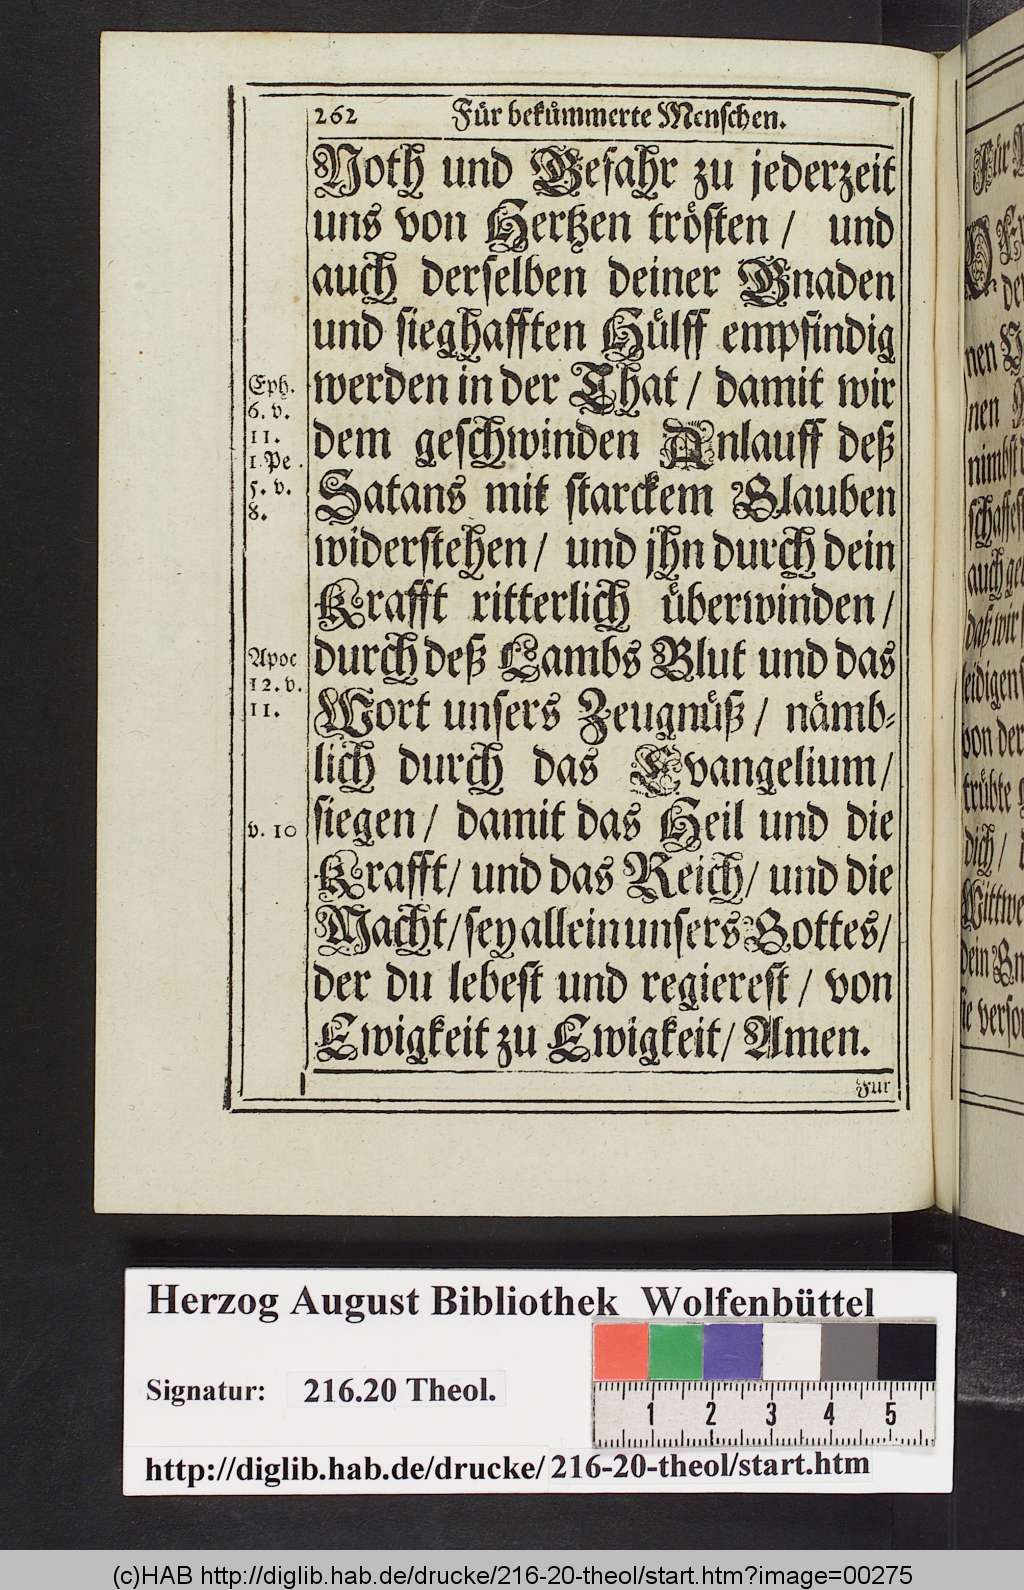 262 Für bekümmerte Menschen.
Noth und Gefahr zu jederzeit
uns von Hertzen trösten / und
auch derselben deiner Gnaden
und sieghafften Hülff empfindig
werden in der That / damit wir
dem geschwinden Anlauff deß
Satans mit starckem Glauben
widerstehen / und jhn durch dein
Krafft ritterlich überwinden /
durch deß Lambs Blut und das
Wort unsers Zeugnüß / nämb-
lich durch das Evangelium /
siegen / damit das Heil und die
Krafft / und das Reich / und die
Macht / sey allein unsers Gottes /
der du lebest und regierest / von
Ewigkeit zu Ewigkeit / Amen.
Für
Eph.
6. v.
11.
1. Pe.
5. v.
8.
Apoc
12. v.
11.
v. 10
Für
de
nen
nen
nimbst
schaffest
auch
daß wir
eidigen
von der
trübte
dich /
Wittwe
dein
sie
Herzog August Bibliothek Wolfenbüttel
Signatur: 216.20 Theol.
1 2 3 4 5
http://diglib.hab.de/drucke/216-20-theol/start.htm
(c)HAB http://diglib.hab.de/drucke/216-20-theol/start.htm?image=00275